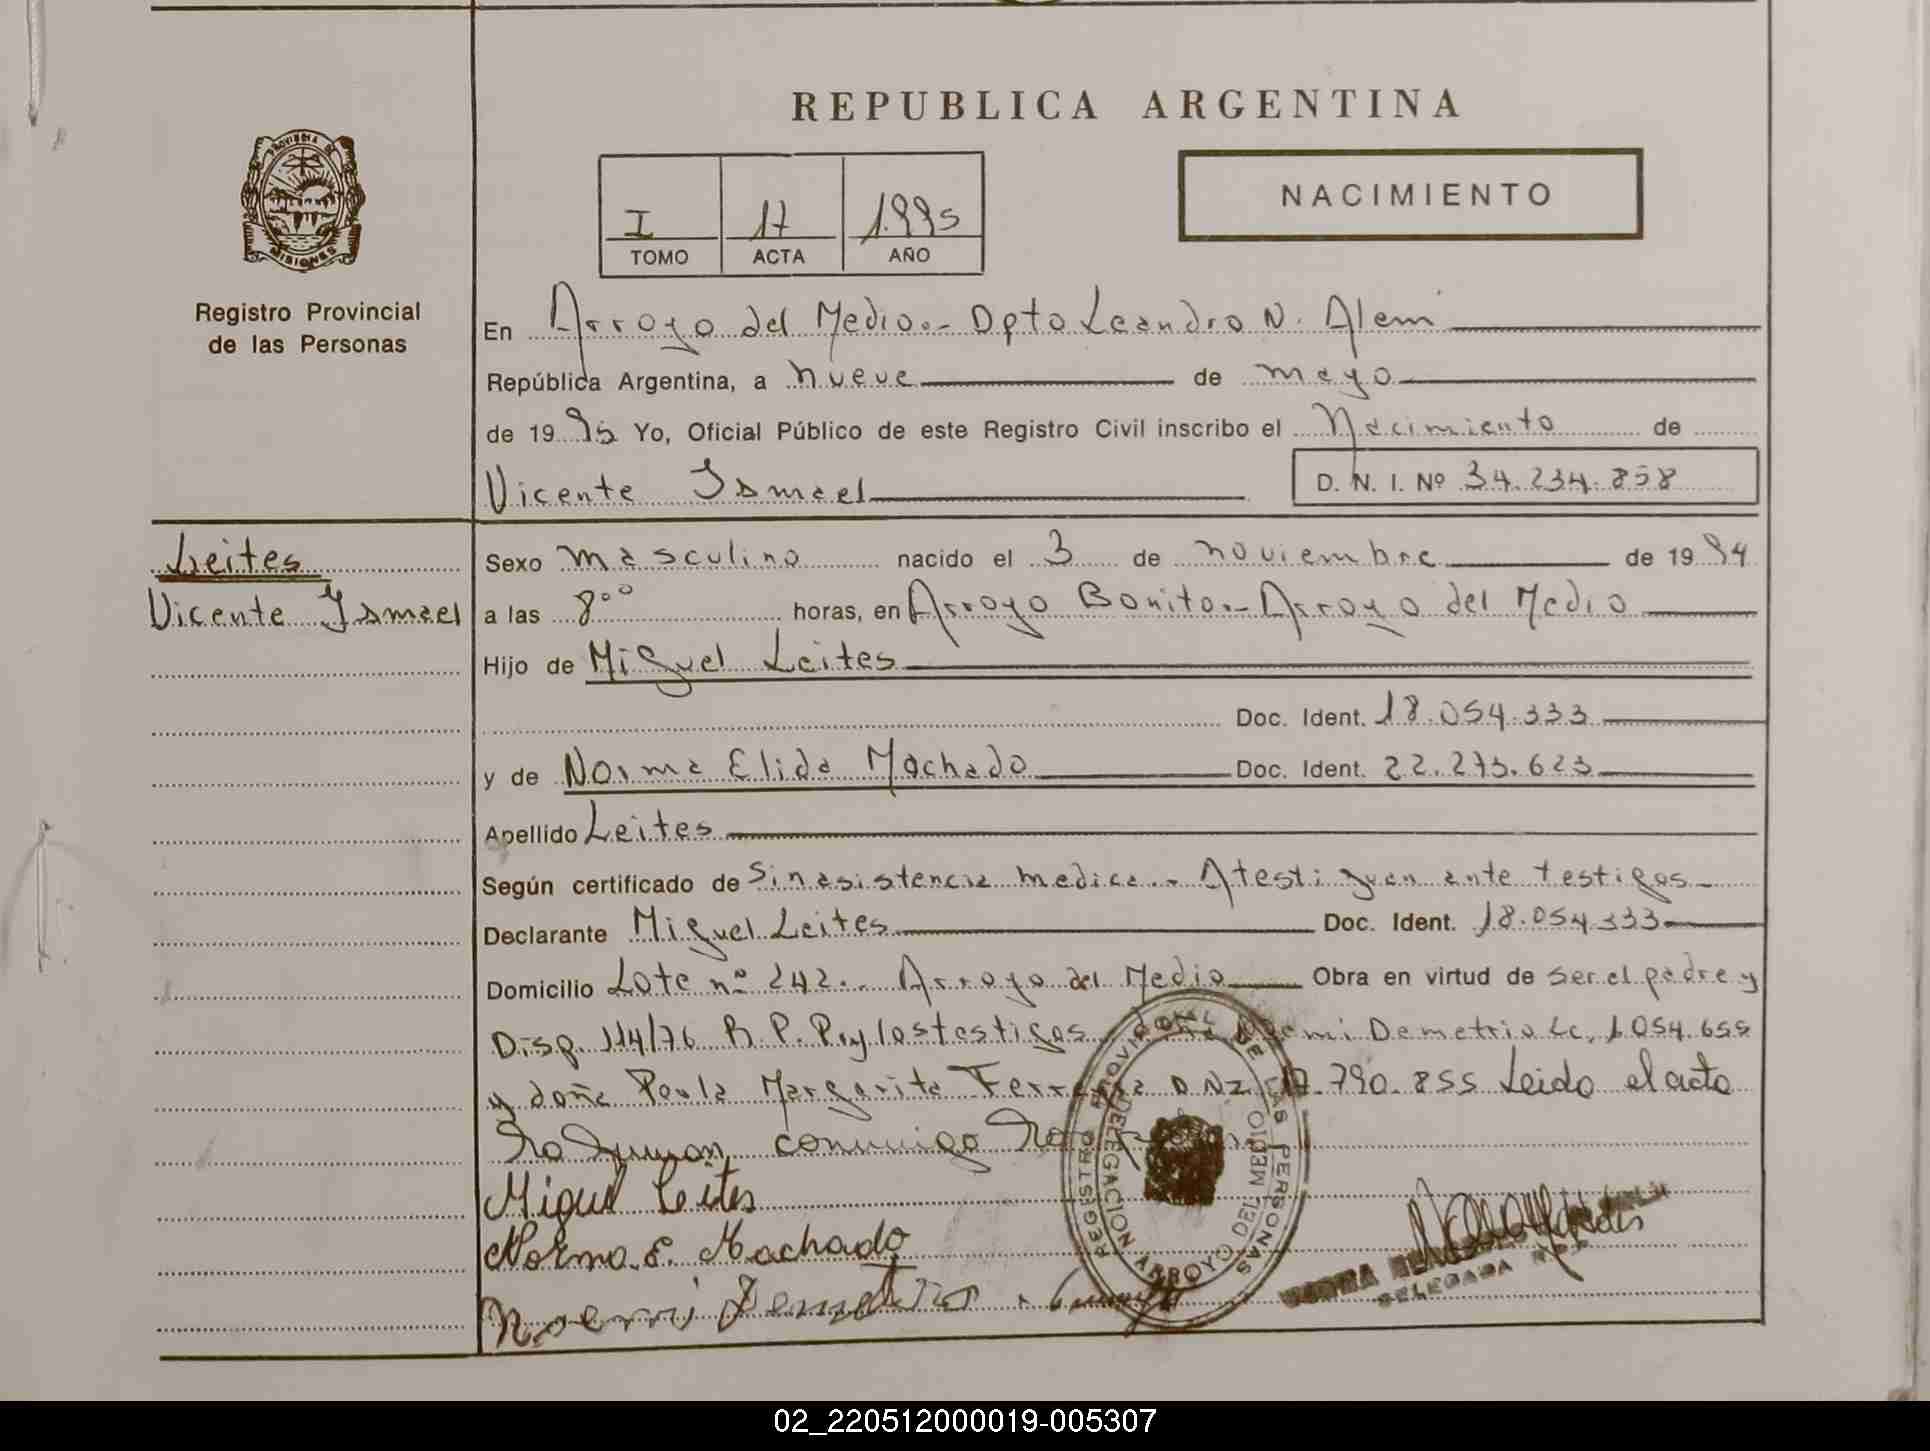 REPUBLICA ARGENTINA
PROVINCIA DE
MISIONES
Registro Provincial
de las Personas
I 17 1.995
TOMO ACTA AÑO
NACIMIENTO
En Arroyo del Medio.- Dpto Leandro N. Alem
República Argentina, a nueve de mayo
de 1995 Yo, Oficial Público de este Registro Civil inscribo el Nacimiento de
Vicente Ismael D. N. I. Nº 34.234.858
Leites
Vicente Ismael
Sexo masculino nacido el 3 de noviembre de 1994
a las 8°° horas, en Arroyo Bonito.- Arroyo del Medio
Hijo de Miguel Leites
Doc. Ident. 18.054.333
y de Norma Elida Machado Doc. Ident. 22.273.623
Apellido Leites
Según certificado de Sin asistencia medica.- Atestiguan ante testigos
Declarante Miguel Leites Doc. Ident. 18.054.333
Domicilio Lote nº 242.. Arroyo del Medio Obra en virtud de ser el padre y
Disp. 114/76 R.P.P. y los testigos Demetrio Lc.
y doña Paula Margarita DNI 790.855 Leido el acta
conmigo
Miguel Leites
Norma. E. Machado
Noemi Demetrio
REGISTRO PROVINCIAL DE LAS PERSONAS
DELEGACION ARROYO DEL MEDIO
DELEGADA
02_220512000019-005307